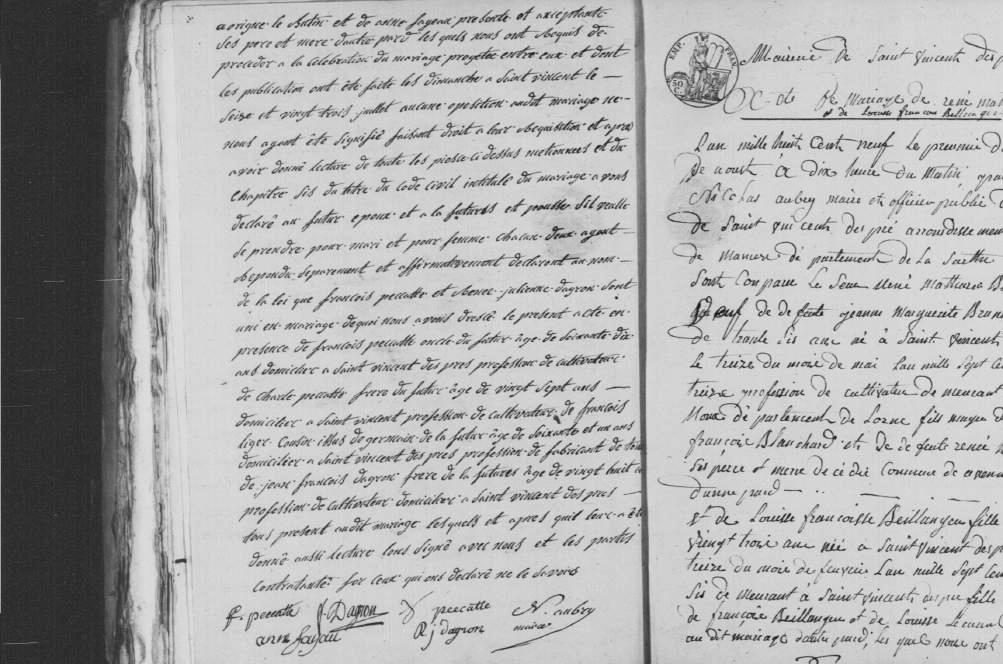 avorigne le Butin et de anne fayeau presente et axceptante
ses pere et mere dautre pard les quels nous ont Requis de
proceder a la Celebration du mariage projette entre eux et dont
les publication ont été faite les dimanche a saint vincent le
Seize et vingt trois juillet aucune oposition audit mariage ne
nous ayant été signifié faisant droit a leur Requisition et aprés
avoir donné lecture de toute les piesse ci dessus metionnees et du
chapitre sis du titre du Code Civil intitulé du mariage avons
declaré au futur epoux et a la futures et
se prendre pour mari et pour femme chacun deux ayant
Repondu separement et affirmativement declaront au nom
de la loi que francois peccatte et Renee julienne dagron sont
uni en mariage dequoi nous avons dressé le present acte en
presence de francois peccatte oncle du futur âge de soixante dix
ans domicilier a saint vincent des pres profession de cultivateur
de Charle peccatte frere du futur âge de vingt sept ans
domicilier a saint vincent profession de cultivateur de francois
liger Cousin issus de germain de la futur âge de soixante et un ans
domicilier a saint vincent des pres profession de fabricant de
de jean francois dagron frere de la futures âge de vingt huit
profession de cultivateur domicilier a saint vincent des pres
tous present audit mariage lesquels et apres quil leur a été
donné aussi lecture lons signé avec nous et les partis
Contratante for ceux qui ons declaré ne le savoir
f. peccatte J. Dagron peccatte N. aubry
anne fayau R j dagron maire
EMP. FRAN.
50
Mairie de Saint vincent des
de Mariage de rené
et de Louisse francoise Beillangeu
Lan mille huit Cent neuf le premier
De aoust à dix heure du Matin
Nicolas aubry maire et officier public
de Saint vincent des pré arrondissement
de Mamers dé partement de La Sarthe
Sont Conparu le Sieur René Mathurin
veuf de de feute jeanne Marguerite
de trante Sis ans né à Saint vincent
le treize du mois de mai Lan mille Sept
treize profession de cultivateur de meurant
dé partement de Lorne fils mageur
francois Blanchard et de de feute renée
Ses peire et mere de cé dé Commune de
dunne pard
et de Louisse francoisse Beillangeu fille
vengt trois ans née a Saint vincent des
treize du mois de fevrier Lan mille Sept
Sis de meurant à Saint vincent des pré fille
de françois Beillangeu et de Louisse
au dit mariage dautre pard, Les quel nous ont